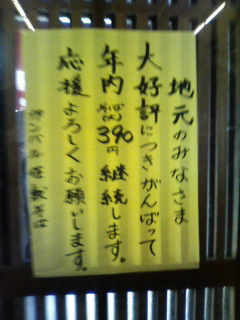 地元のみなさま
大好評につきがんばって
年内 390円 継続します。
応援よろしくお願いします。